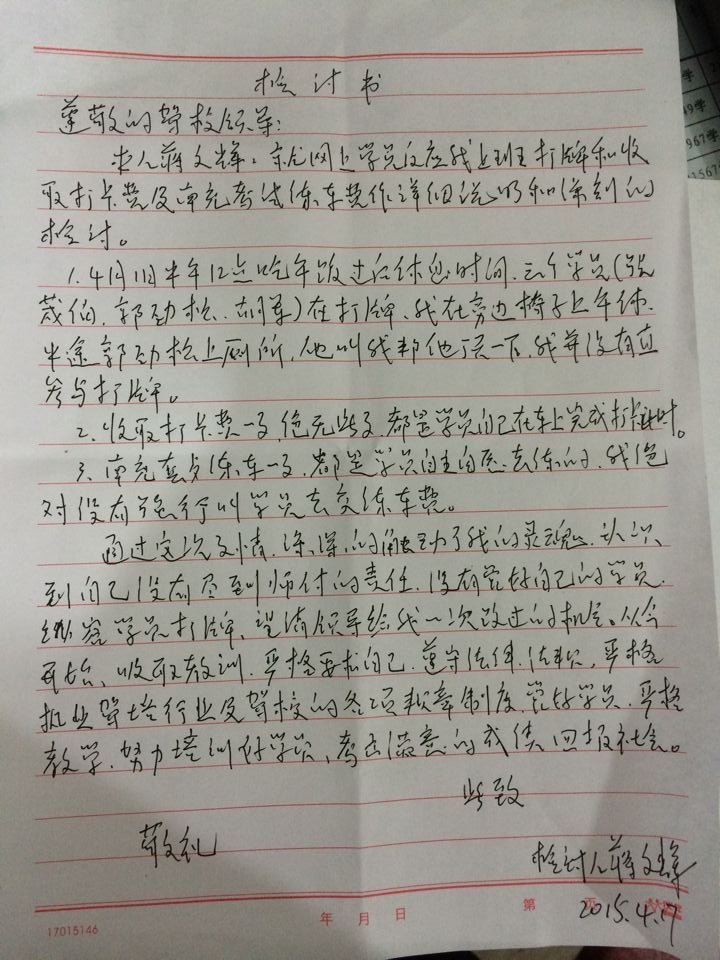 检讨书
尊敬的驾校领导：
本人蒋文辉，就网上学员反应我上班打牌和收
取打卡费及南充考试练车费作详细说明和深刻的
检讨。
1.4月11日中午12点吃午饭过后休息时间，三个学员（
茂伯，郭劲松，胡军）在打牌，我在旁边椅子上午休，
中途郭劲松上厕所，他叫我帮他顶一下，我并没有直
参与打牌。
2、收取打卡费一事，绝无此事，都是学员自己在车上完成打卡计时。
3、南充考点练车一事，都是学员自主自愿去练的，我绝
对没有强行叫学员去交练车费。
通过这次事情，深深的触动了我的灵魂，认识
到自己没有尽到师付的责任，没有管好自己的学员，
纵容学员打牌，望请领导给我一次改过的机会。从今
开始，吸取教训，严格要求自己，遵守法律，法规，严格
执业驾培行业及驾校的各项规章制度，管好学员，严格
教学，努力培训好学员，考出满意的成绩，回报社会。
此致
敬礼
检讨人 蒋文辉
2015.4.17
年 月 日
第 页
17015146
学
49学
967学